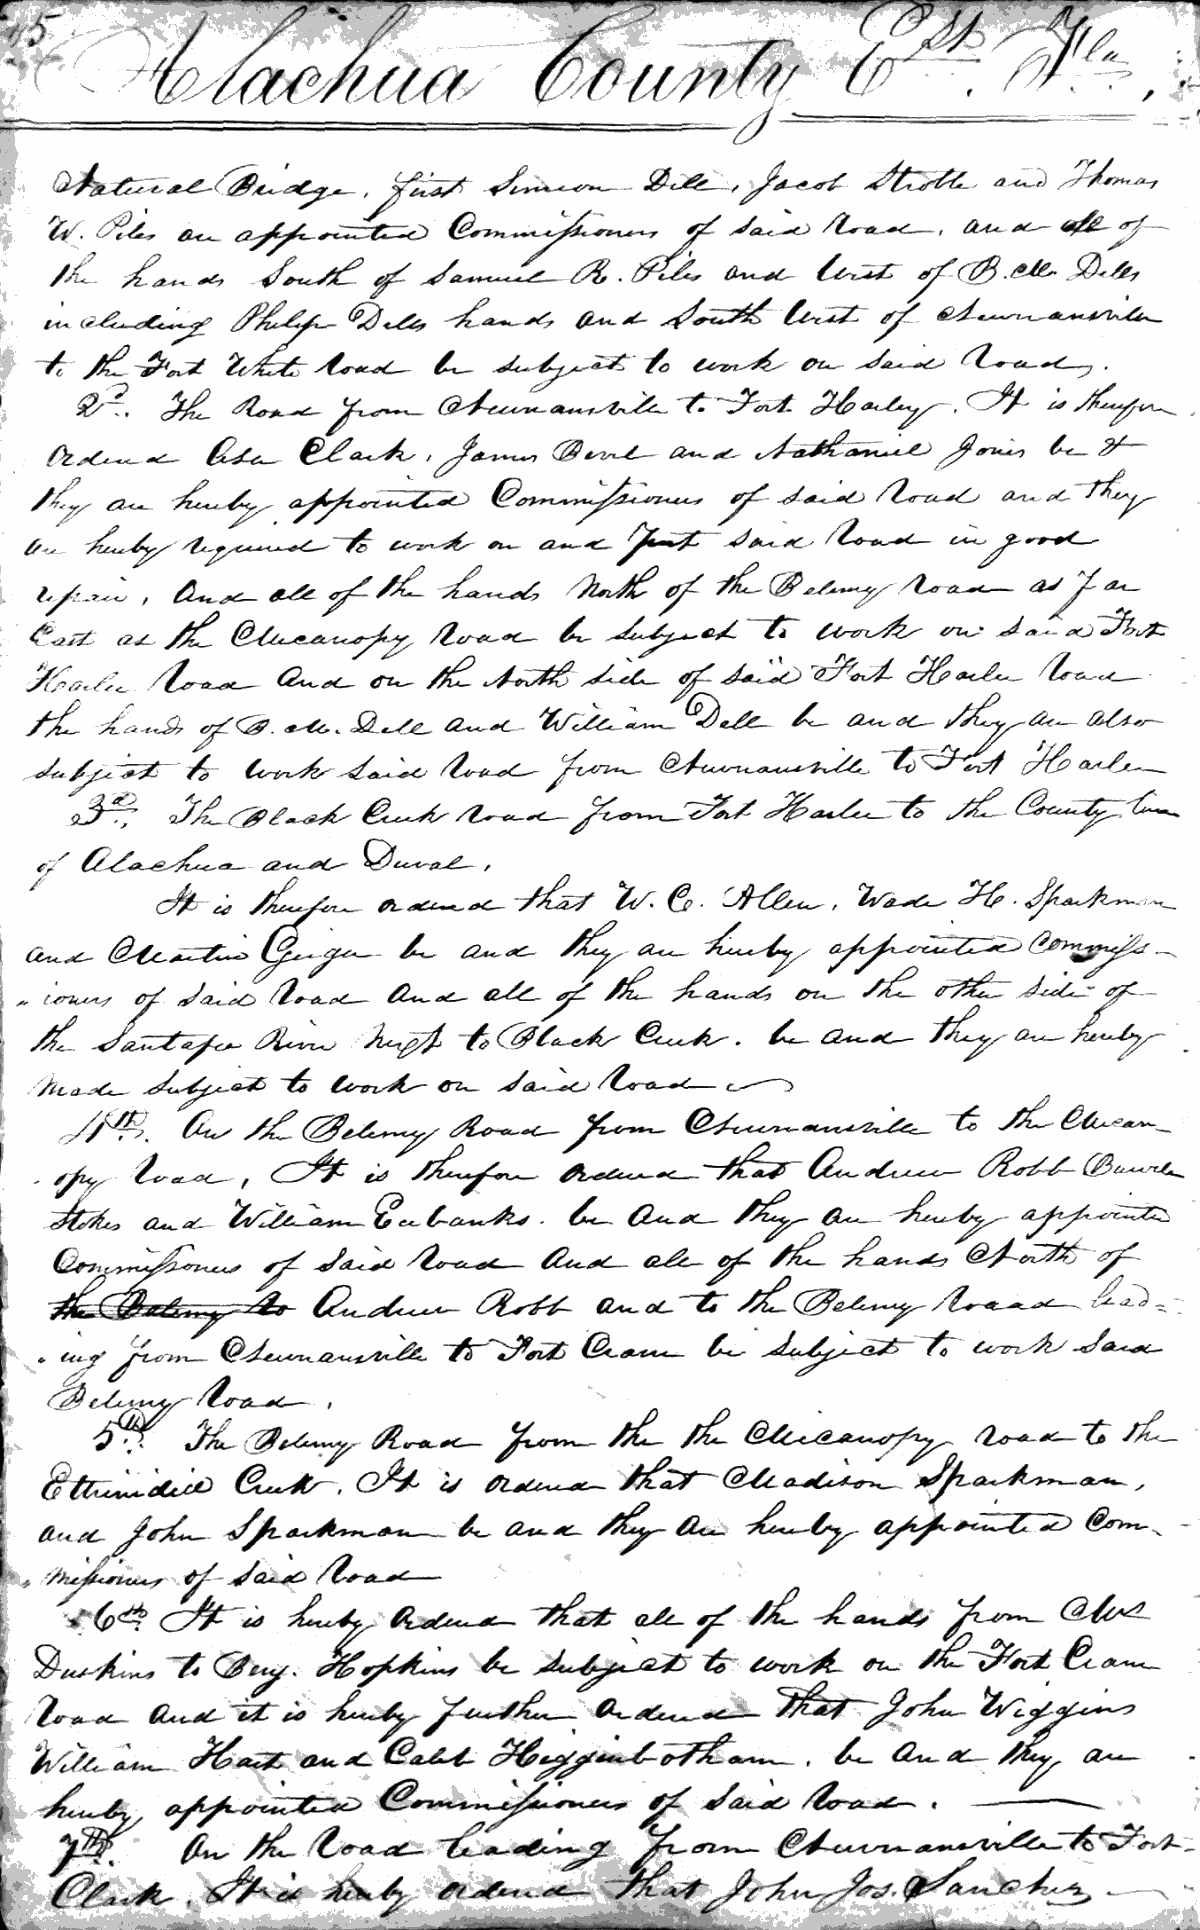 Alachua County Est. Fla.
Natural Bridge, first Simeon Dell, Jacob Stroble and Thomas
W. Piles are appointed Commissioners of said road, and all of
the hands South of Samuel R. Piles and West of B. M. Dells
including Philip Dells hands and South West of Newnansville
to the Fort White road be subject to work on said road.
2d. The Road from Newnansville to Fort Harley. It is therefore
ordered Asa Clark, James Bevil and Nathaniel Jones be &
they are hereby appointed Commissioners of said road and they
are hereby required to work on and put said road in good
repair, And all of the hands North of the Belemy road as far
East as the Micanopy road be subject to work on said Fort
Harlee road And on the North side of said Fort Harlee road
the hands of B. M. Dell and William Dell be and they are also
subject to work said road from Newnansville to Fort Harlee
3d. The Black Creek road from Fort Harlee to the County line
of Alachua and Duval.
It is therefore ordered that W. C. Allen, Wade H. Sparkman
and Martin Geiger be and they are hereby appointed Commiss-
"ioners of said road And all of the hands on the other side of
the Santafee River Next to Black Creek. be and they are hereby
made subject to work on said road
4th. On the Belemy Road from Newnansville to the Mican-
opy road, It is therefore ordered that Andrew Robb
Stokes and William Eubanks. be And they are hereby appointed
Commissioners of said road And all of the hands North of
the Belemy to Andrew Robb and to the Belemy roaad lead=
"ing from Newnansville to Fort Crane be subject to work said
Belemy road.
5th. The Belemy Road from the the Micanopy road to the
Creek. It is ordered that Madison Sparkman,
and John Sparkman be and they are hereby appointed Com-
"missioners of said road
6th It is hereby ordered that all of the hands from Mrs
Duskins to Benj. Hopkins be subject to work on the Fort Crane
road and it is hereby further ordered that John Wiggins
William Hart and Caleb Higginbotham. be And they are
hereby appointed Commissioners of said road.
7th. On the road leading from Newnansville to Fort
Clark. It is hereby ordered that John Jos. Sanchez